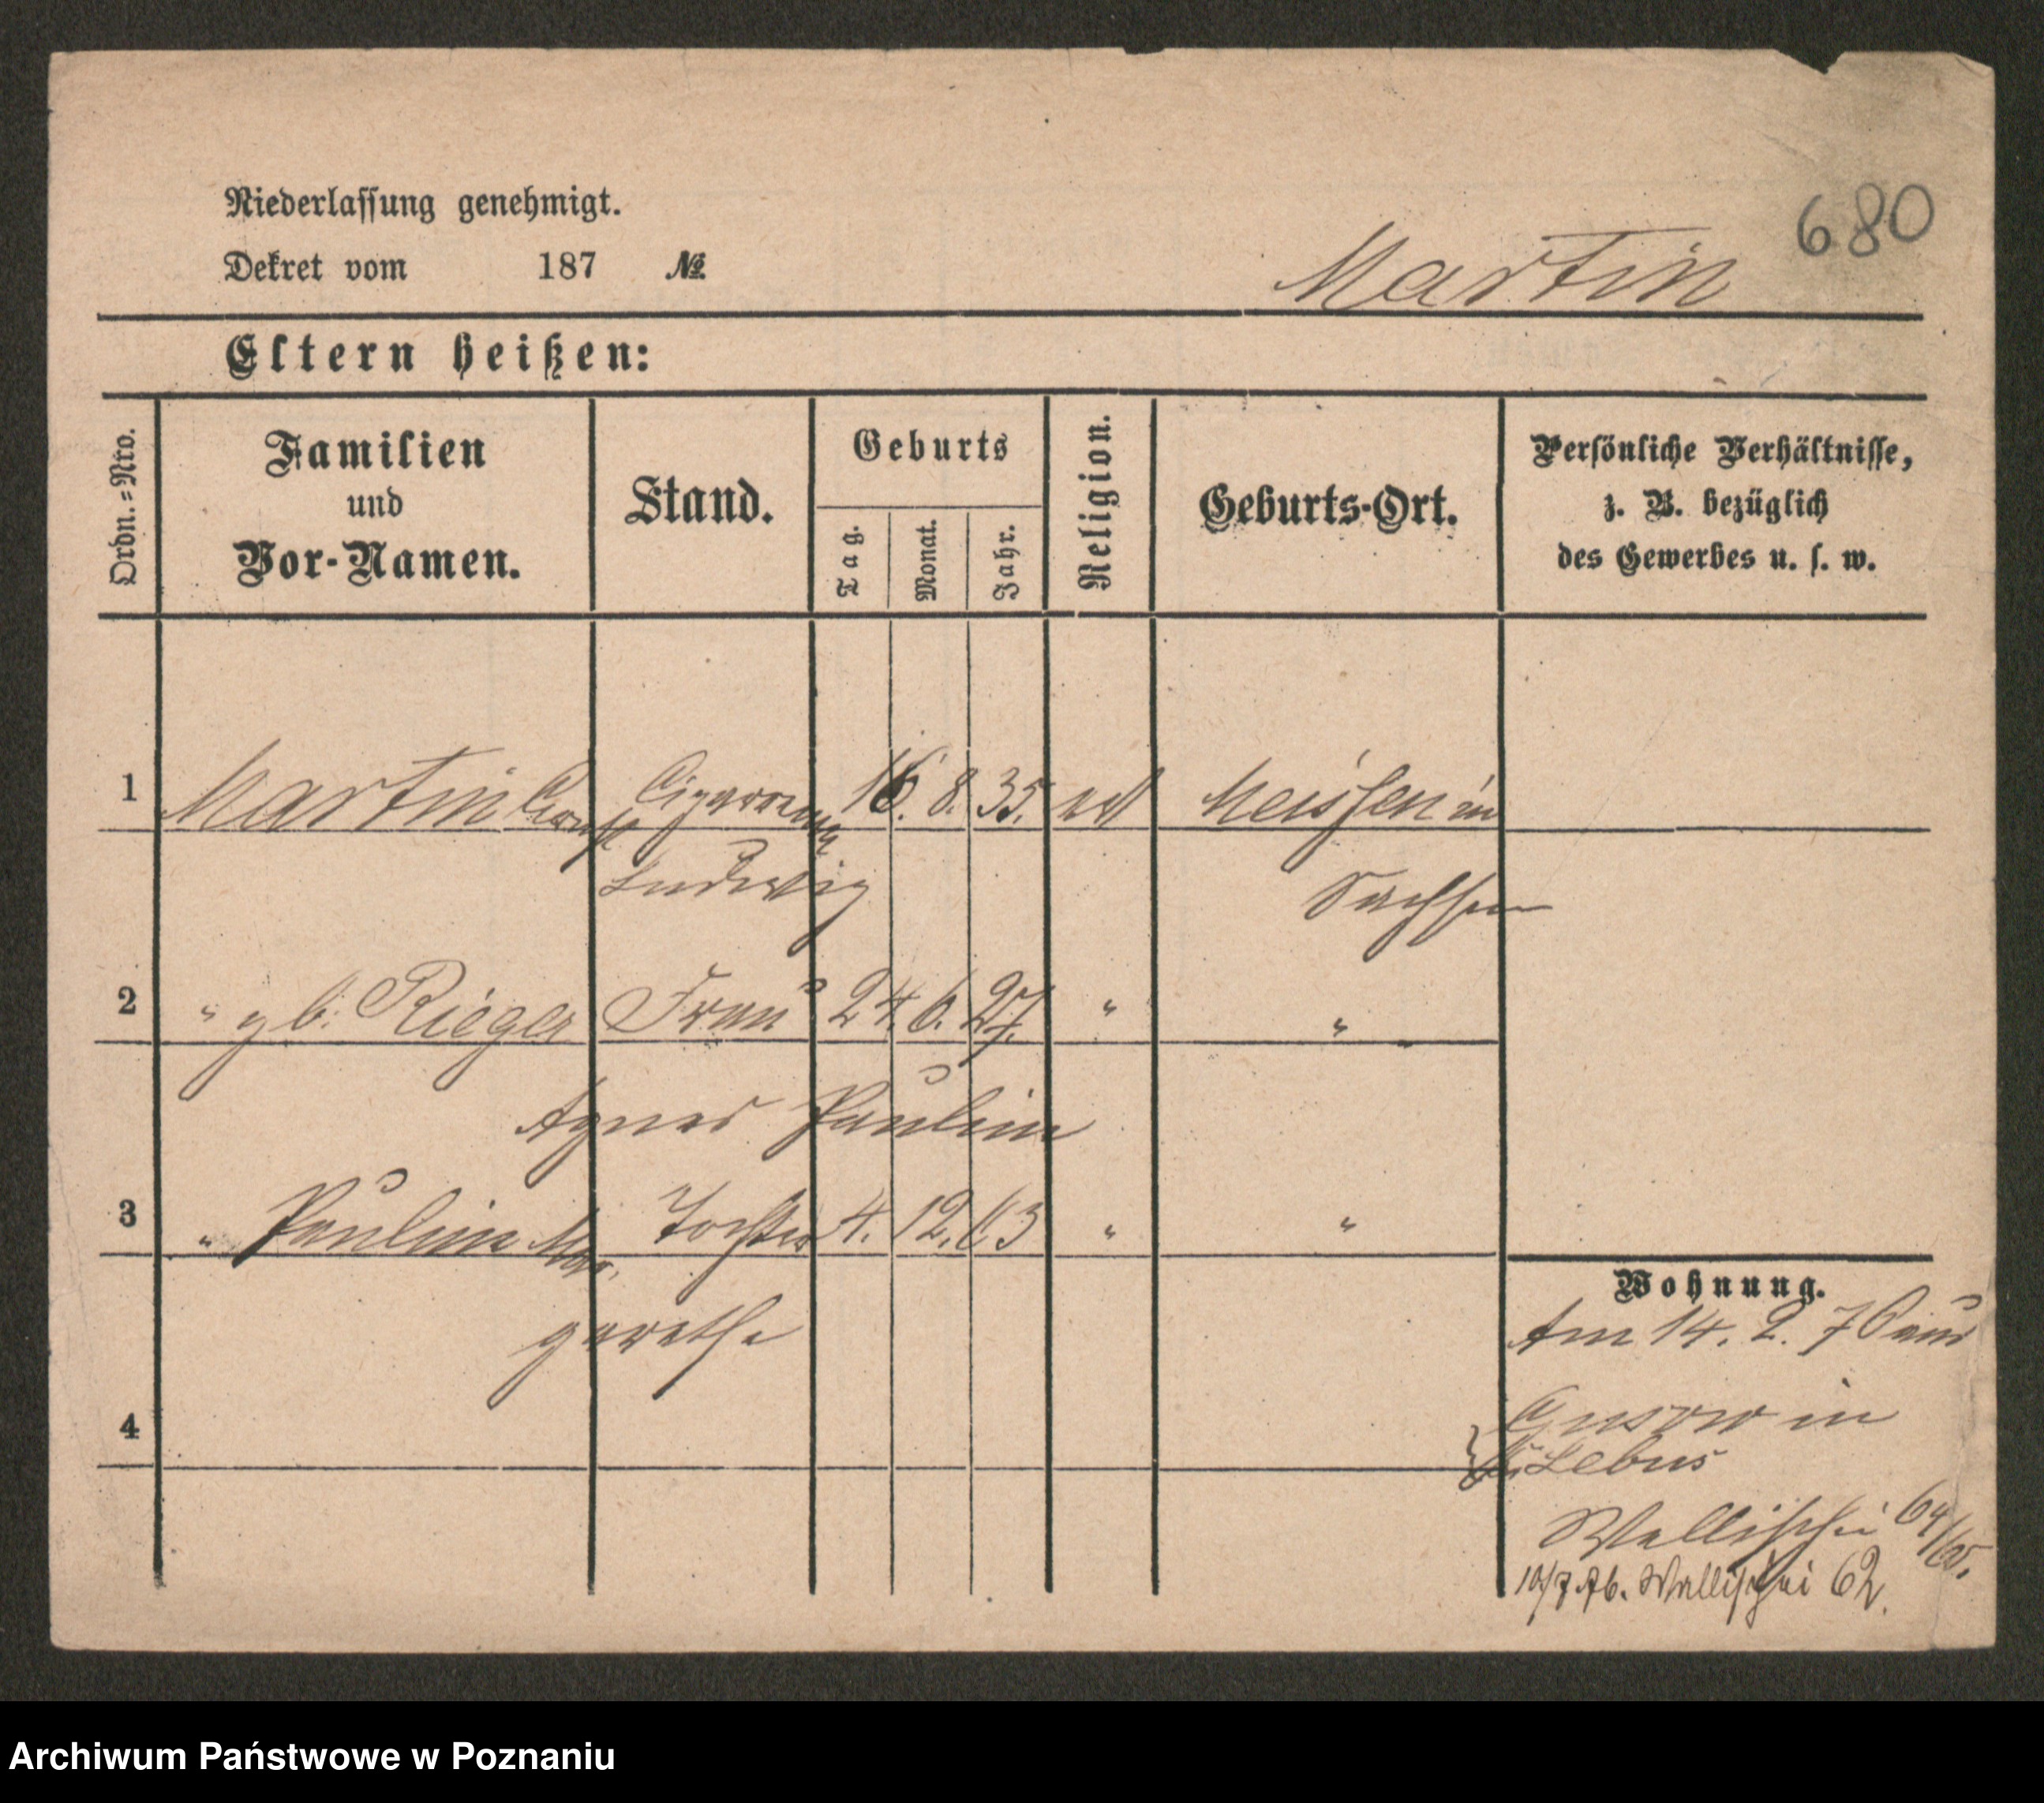 680
Niederlassung genehmigt.
Dekret vom 187 №
Martin
Eltern heißen:
Ordn.=Nro.
Familien
und
Vor-Namen.
Stand.
Geburts
Tag.
Monat.
Jahr.
Religion.
Geburts-Ort.
Persönliche Verhältnisse,
z. B. bezüglich
des Gewerbes u. s. w.
1 Martin 16. 8. 35. Meissen in
Ludwig Sachsen
2 " gb. Rieger Frau 24. 6. 27. " "
Agnes Pauline
3 " Pauline Mar- Tochter 4. 12. 63 " "
garethe
4
Wohnung.
Am 14. 2. 76 aus
Gusow in
Lebus
Wallischei 64/65.
10/7 76. Wallischei 62.
Archiwum Państwowe w Poznaniu